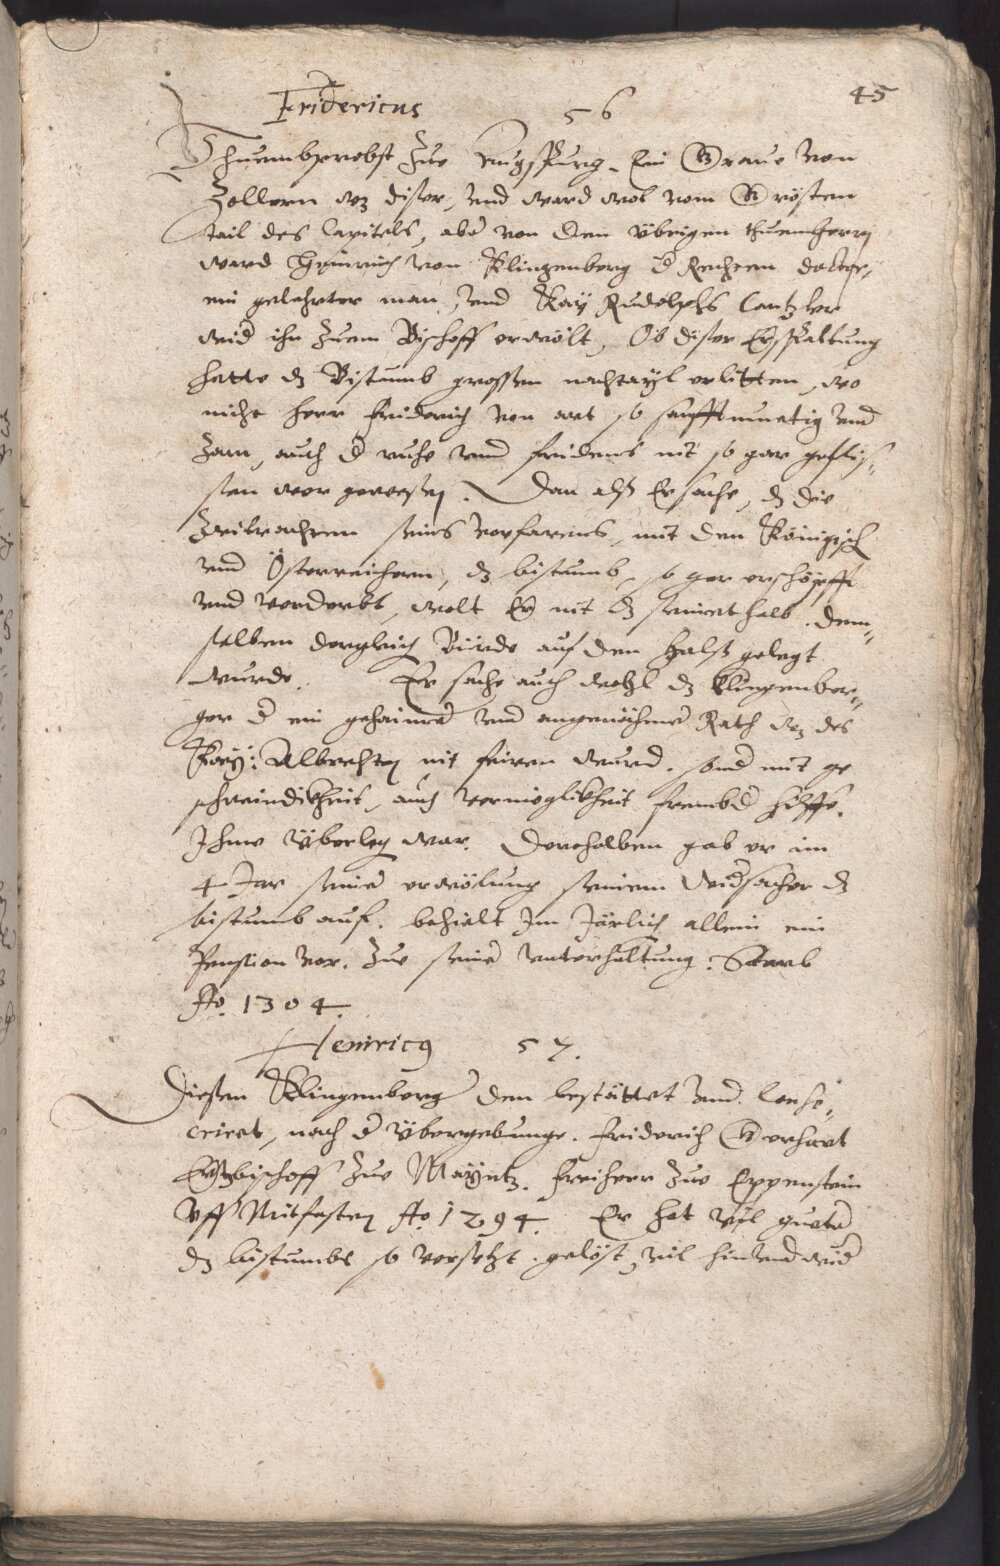 45
Fridericus 56
Thuembprobst zue Augspurg. Ein Graue von
Zollern wz diser, vnd ward wol vom Grösten
tail des Capitels, aber von den übrigen thuemherrn
ward Heinrich von Klingenberg d Rechten doctor,
ein gelehrter man, vnd Kay Rudolphs Cantzler
wid ihn zuem Bischoff erwölt, Ob diser Ersspaltung
hette dz Bistumb grossen nachtayl erlitten, wo
nicht herr Friderich von art so sanfftmuetig vnd
zam, auch d ruhe vnd fridens nit so gar geflis„
sen wer gewessen. Dan alß Er sache, dz die
Zeitwehrem seins vorfarens, mit den Königisch
vnd Österreichern, dz bistumb, so gar erschöpfft
vnd verderbt, wolt Er nit dz seinethalb. dem„
selben dergleich Bürde auf den Halß gelegt
wurde. Er sache auch wohl dz Klingenber„
ger d ein gehaimer vnd angenähmer Rath wz des
Kay: Albrechten nit feiren wurd. sond mit ge
schwindikheit, auch vermöglikheit frembd hilffe.
Ihme Überleg war. Derohalben gab er im
4 Jar seiner erwölung seinem widsacher dz
bistumb auf. behielt Im Järlich allein ein
Pension vor. zue seiner vnterhaltung: Starb
Ao. 1304.
Henricg 57.
Diesen Klingenberg den bestättet vnd. Conse„
criret, nach d Übergebunge. Friderich Gerhart
Ertzbischoff zue Mayntz. freiherr zue Eppenstein
Vff Mitfasten Ao 1294. Er hat vil gueter
dz bistumbs so versetzt. gelöst, vil hin vnd wid